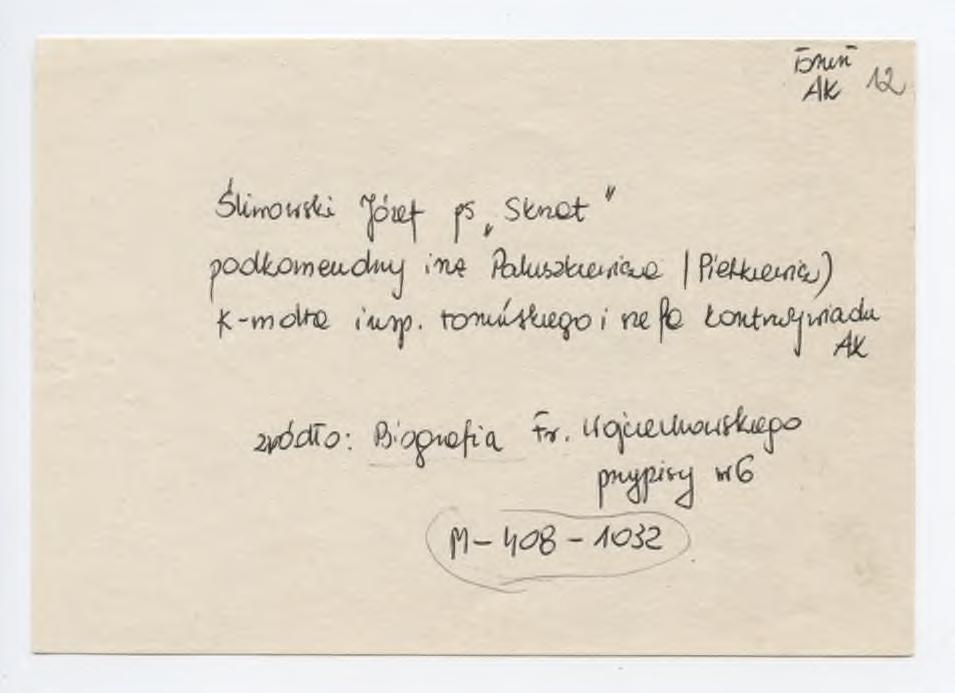 Toruń
AK 12
Ślinowski Józef ps „Sknot"
podkomendny inż Paluszkiewicza (Pietkiewicz)
K-molta insp. toruńskiego i szefa kontrwywiadu
AK
źródło: Biografia Fr. Wojciechowskiego
przypisy nr 6
M-408-1032